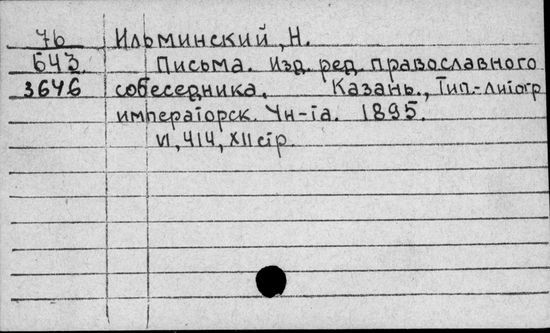 76 Ильминский, Н.
643. Письма. Изд. ред. православного
3646 собеседника. Казань., Тип.-литогр
императорск. Ун-та. 1895.
VI, 414, XII стр.